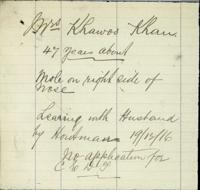 Mrs Khawos Khan
47 years about
Mole on right side of
nose
Leaving with Husband
by Hartman 19/12/16
No application for